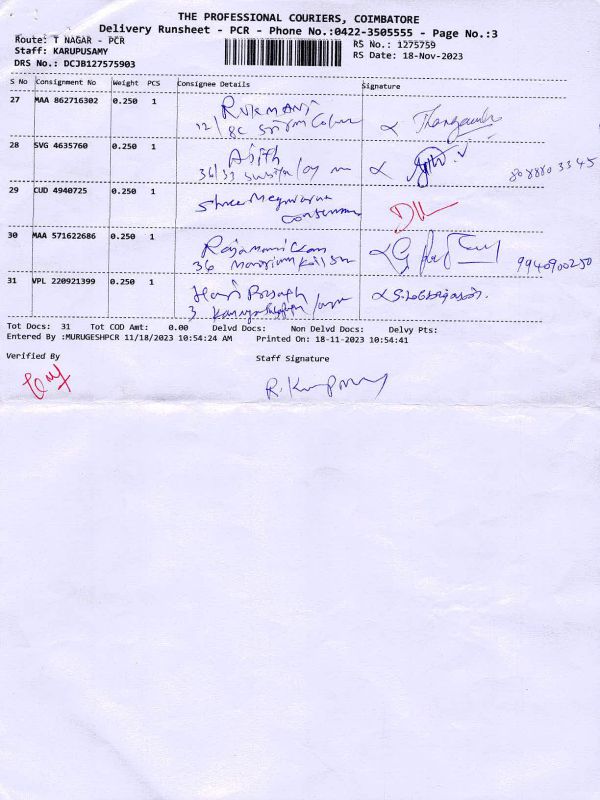 THE PROFESSIONAL COURIERS, COIMBATORE
Delivery Runsheet - PCR - Phone No.:0422-3505555 - Page No.:3
Route: T NAGAR - PCR
RS No.: 1275759
Staff: KARUPUSAMY
RS Date: 18-Nov-2023
DRS No.: DCJB127575903
S No Consignment No Weight PCS Consignee Details Signature
27 MAA 862716302 0.250 1 RUKMANI
12/8C
28 SVG 4635760 0.250 1 Ajith
36/33
808880 3345
29 CUD 4940725 0.250 1 Shree
30 MAA 571622686 0.250 1 Rajamanickam
36
9940900250
31 VPL 220921399 0.250 1 Hari
3
Tot Docs: 31 Tot COD Amt: 0.00 Delvd Docs: Non Delvd Docs: Delvy Pts:
Entered By :MURUGESHPCR 11/18/2023 10:54:24 AM Printed On: 18-11-2023 10:54:41
Verified By Staff Signature